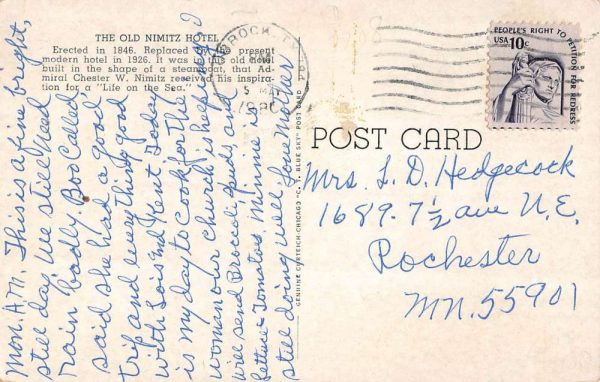 THE OLD NIMITZ HOTEL
Erected in 1846. Replaced by the present
modern hotel in 1926. It was in this old hotel
built in the shape of a steamboat, that Ad-
miral Chester W. Nimitz received his inspira-
tion for a "Life on the Sea."
PEOPLE'S RIGHT TO PETITION FOR REDRESS
USA 10c
POST CARD
Mrs. L. D. Hedgecock
1689-7½ ave N.E.
Rochester
MN. 55901
GENUINE CURTEICH-CHICAGO "C. T. BLUE SKY" POST CARD
Mon. A.M. This is a fine bright,
still day. We still need
rain badly. Boo called
said she had a good
trip and every thing good
with Lois and Kent. Today
is my day to cook for the
woman our church is helping. I
will send Broccoli, spuds, and
lettuce & tomatoes. Minnie is
still doing well. Love Mother